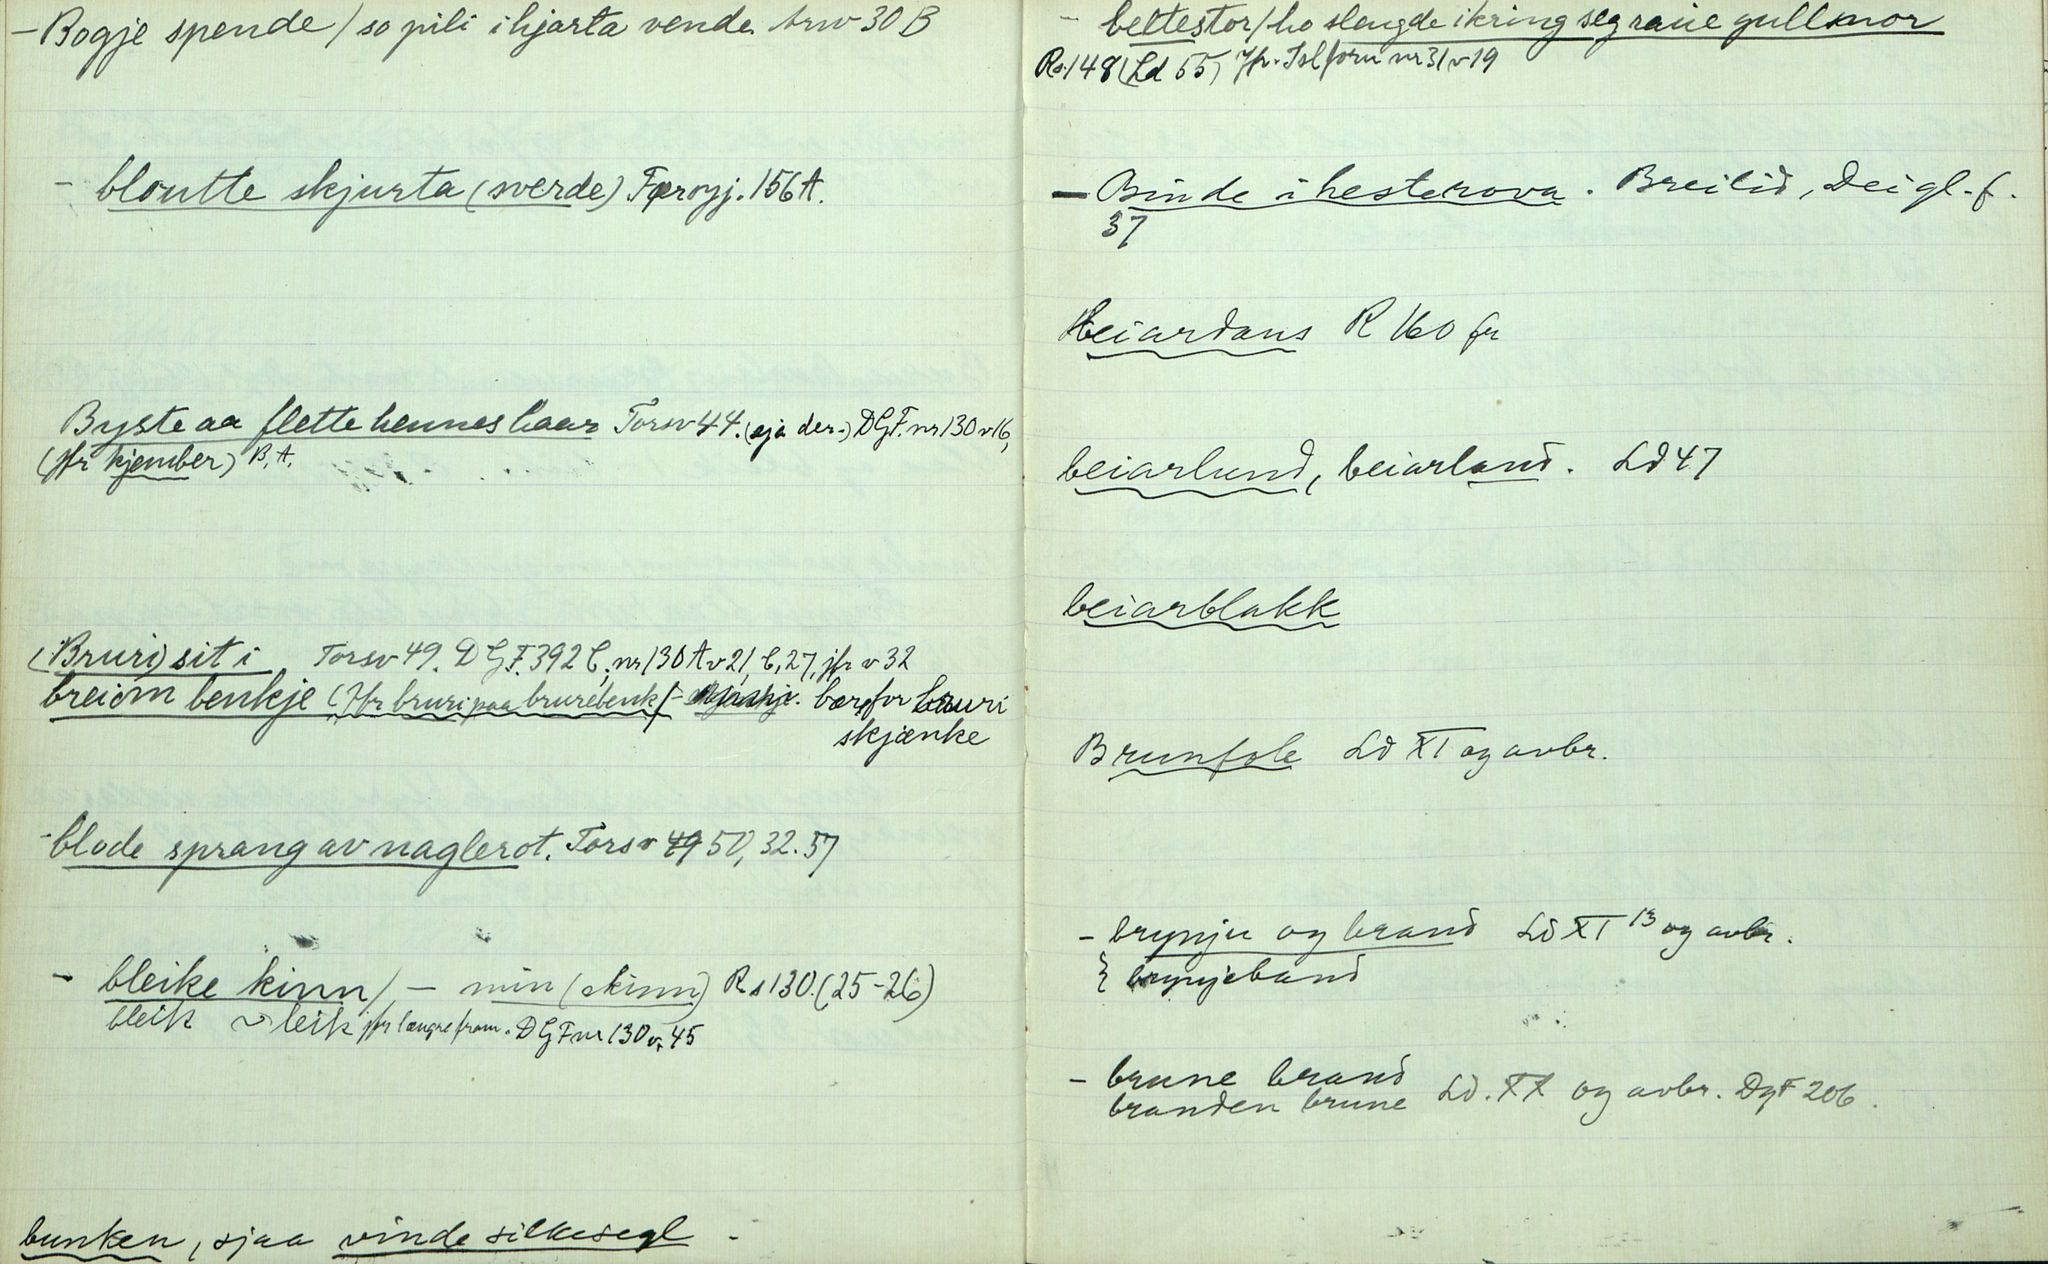 - Bogje spende / so pili i hjarta vende. Arw 30 B
- bloutte skjurta (sverde) Færoyj. 156 A.
Byste aa flette hennes haar Torsv 44. (sjå der.) DGF. nr 130 v 16,
(jfr kjember) B, A.
(Bruri) sit i Torsv 49. DGF. 392 C, nr 130 A v 21, C, 27, jfr v 32
breiom benkje (Jfr bruri paa brurebenk / - bær for bruri
skjænke
- blode sprang av naglerot. Torsv 49 50, 32. 57
- bleike kinn / - min (skinn) Rs 130. (25-26)
bleik ~ leik jfr længre fram. DGF nr 130 v. 45
bunken, sjaa vinde silkesegl -
- beltestor / ho slengde ikring seg raue gullsnor
Rs. 148 (Ld 55) Jfr. Isl forn nr 31 v 19
- Binde i hesterova. Breilid, Dei gl. f.
37
Heiardans R 160 fr
beiarlund, beiarland. Ld 47
beiarblakk
Brunfole Ld XI og avbr.
- brynju og brand Ld XI 13 og avbr.
} brynjeband
- brune brand
branden brune Ld. XX og avbr. DgF 206.